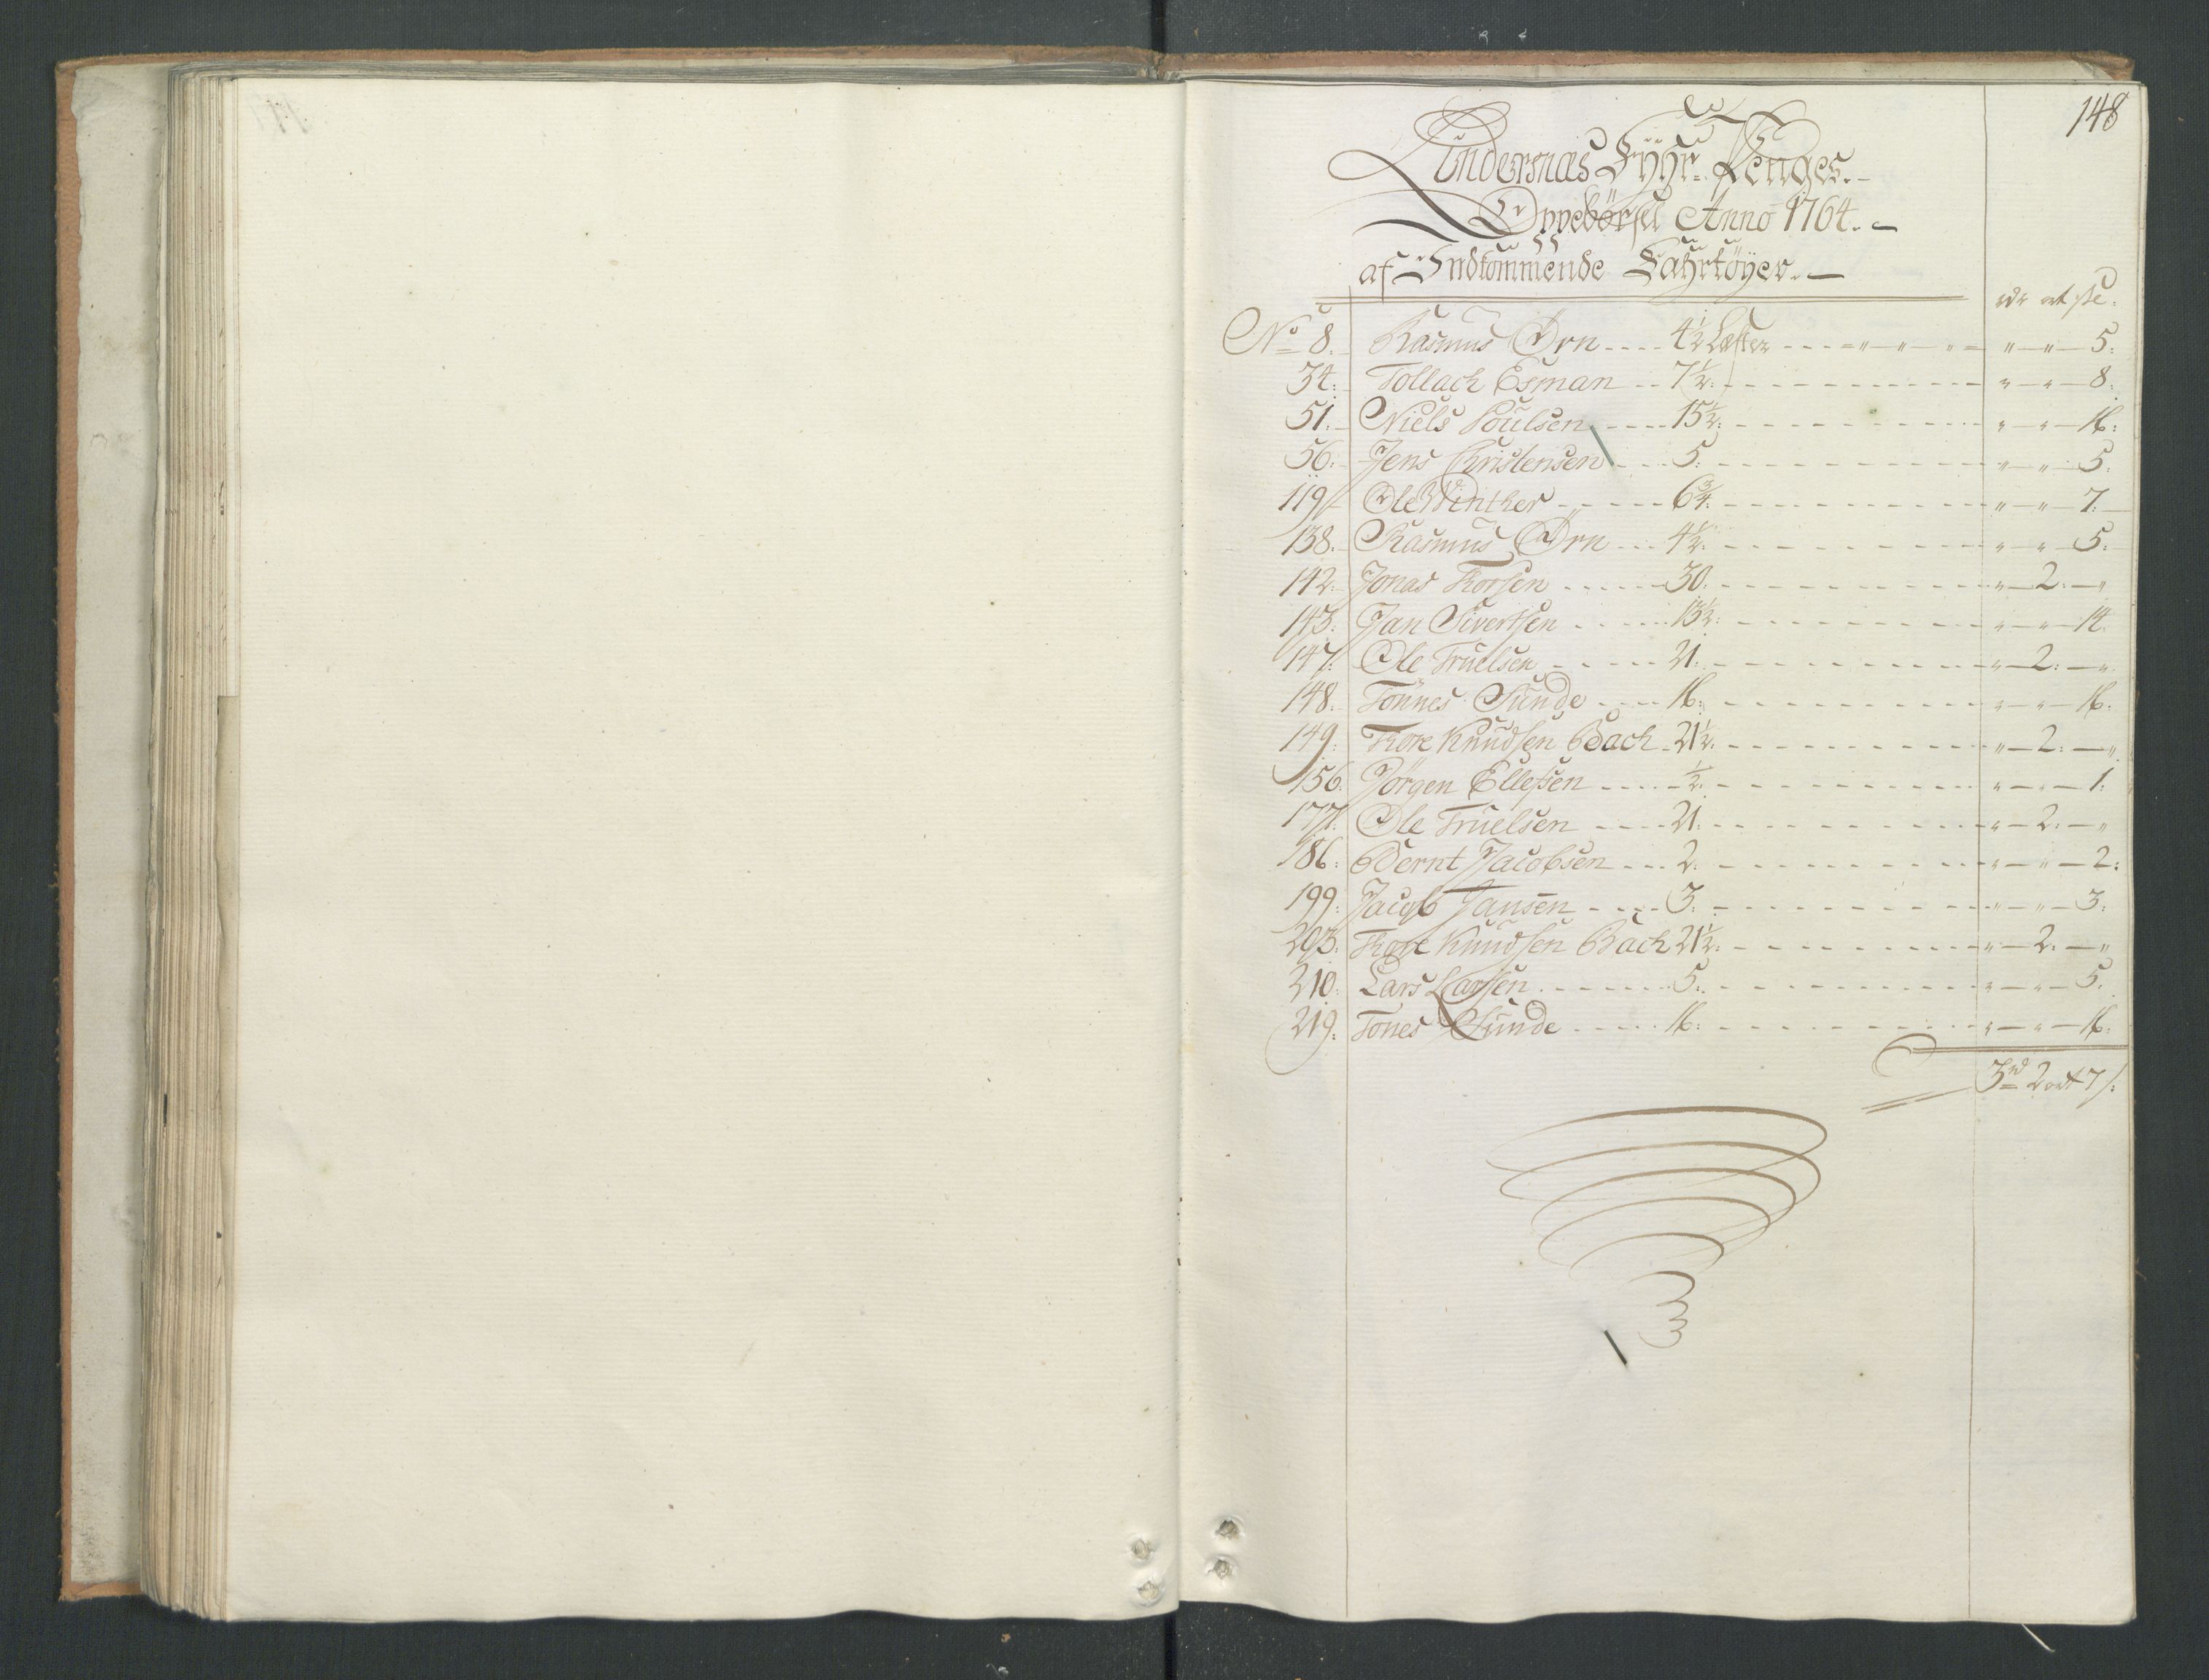 148
Lindersnæs Fÿhr-Penges.
Oppebörsel Anno 1764.
af Indkommende Fahrtöyer.
rdr ort sk:
No 8. Rasmus Örn 4½ Læster " " 5:
34: Tollach Esman 7½: " " 8:
51. Niels Poulsen 15½: " " 16:
56. Jens Christensen 5. " " 5.
119 Ole Winther 6¾. " " 7.
138. Rasmus Örn 4½. " " 5:
142. Jonas Thorsen 30. " 2: "
143. Jan Sivertsen 13½: " " 14.
147. Ole Truelsen 21. " 2: "
148. Tönnes Sunde 16: " " 16.
149. Thore Knudsen Bach 21½. " 2: "
156. Jörgen Ellefsen ½. " " 1.
177. Ole Truelsen 21. " 2: "
186. Bernt Jacobsen 2. " " 2:
199. Jacob Jansen 3. " " 3:
203. Thore Knudsen Bach 21½. " 2. "
210. Lars Larsen 5. " " 5.
219. Tönes Sunde 16: " " 16.
3rd 2 ort 7 s: